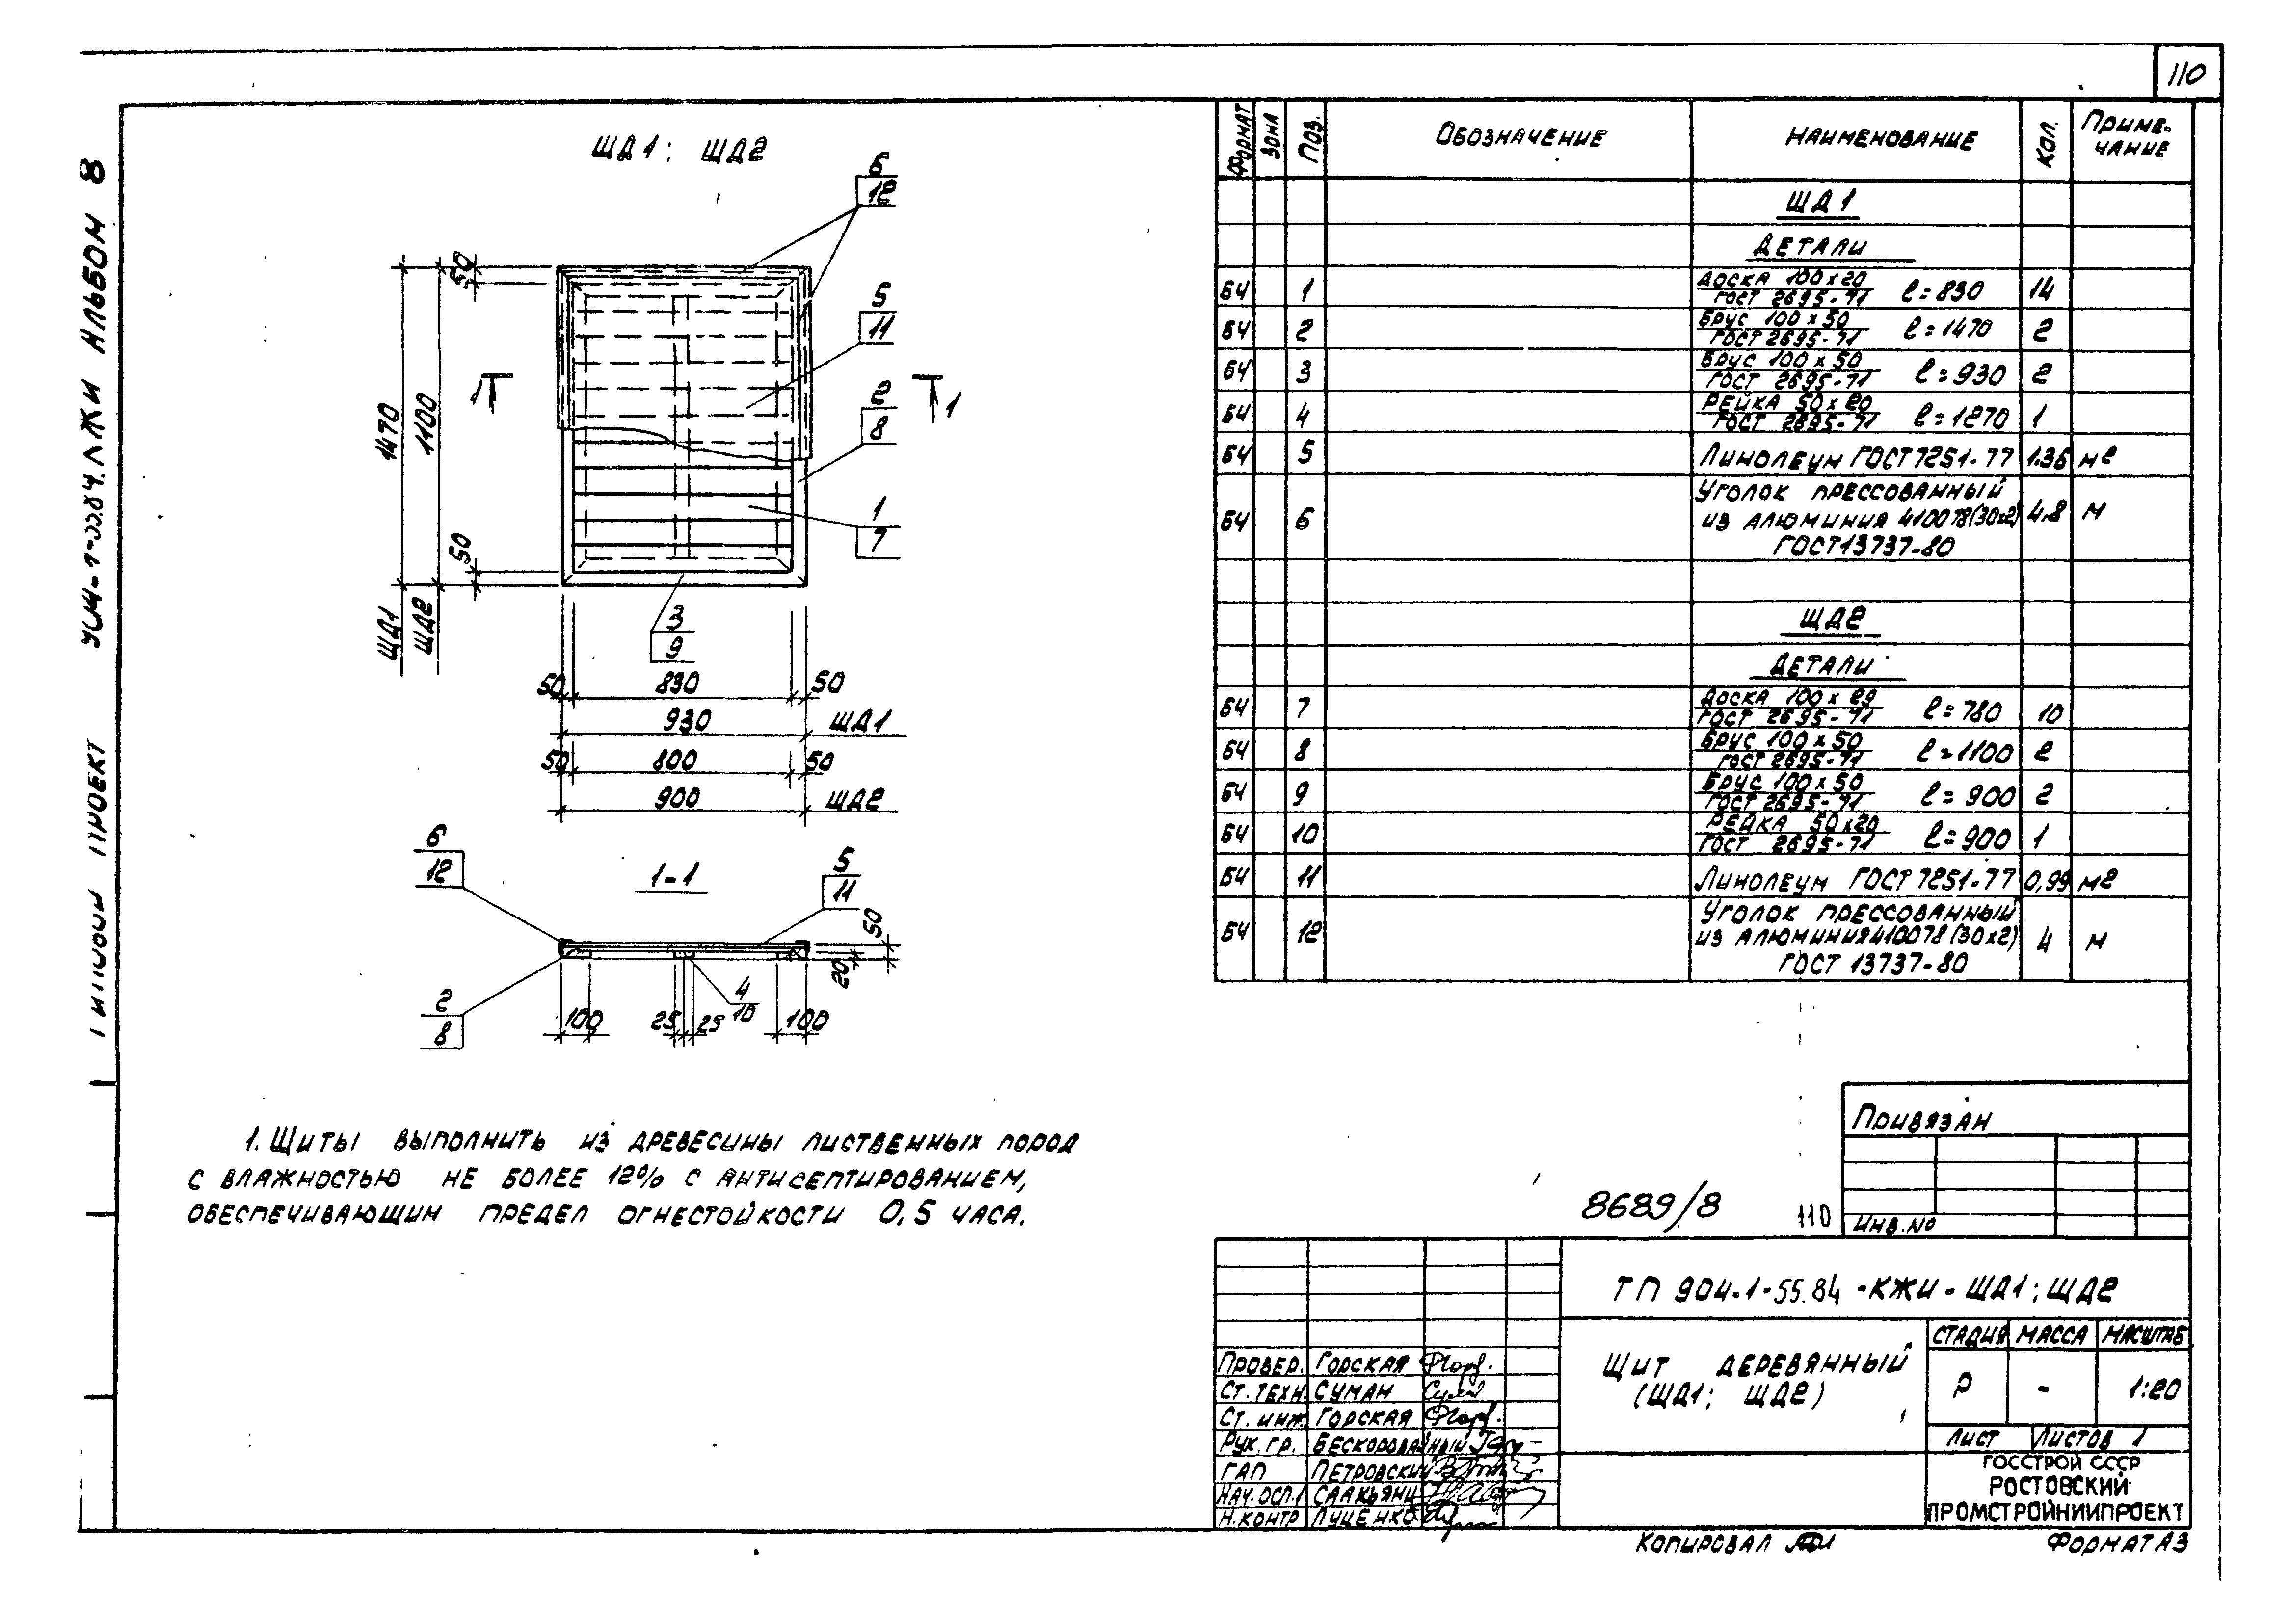 110
ЩД1; ЩД2
6
12
5
11
2
8
1
7
3
9
50
1470
1100
50
ЩД1
ЩД2
1
1
50 830 50
930 ЩД1
50 800 50
900 ЩД2
1-1
6
12
5
11
50
20
2
8
4
10
100 25 25 100
1. Щиты выполнить из древесины лиственных пород
с влажностью не более 12% с антисептированием,
обеспечивающим предел огнестойкости 0,5 часа.
Формат Зона Поз. Обозначение Наименование Кол. Приме-
чание
ЩД1
Детали
БЧ 1 Доска 100х20 ℓ=830 14
ГОСТ 2695-71
БЧ 2 Брус 100х50 ℓ=1470 2
ГОСТ 2695-71
БЧ 3 Брус 100х50 ℓ=930 2
ГОСТ 2695-71
БЧ 4 Рейка 50х20 ℓ=1270 1
ГОСТ 2695-71
БЧ 5 Линолеум ГОСТ 7251-77 1.36 м2
БЧ 6 Уголок прессованный
из алюминия 410078(30х2) 4,8 м
ГОСТ 13737-80
ЩД2
Детали
БЧ 7 Доска 100х20 ℓ=780 10
ГОСТ 2695-71
БЧ 8 Брус 100х50 ℓ=1100 2
ГОСТ 2695-71
БЧ 9 Брус 100х50 ℓ=900 2
ГОСТ 2695-71
БЧ 10 Рейка 50х20 ℓ=900 1
ГОСТ 2695-71
БЧ 11 Линолеум ГОСТ 7251-77 0,99 м2
БЧ 12 Уголок прессованный
из алюминия 410078 (30х2) 4 м
ГОСТ 13737-80
Привязан
Инв.№
8689/8 110
ТП 904-1-55.84 -КЖИ-ЩД1; ЩД2
Щит деревянный
(ЩД1; ЩД2)
Стадия Масса Масштаб
Р - 1:20
Лист Листов 1
ГОССТРОЙ СССР
РОСТОВСКИЙ
ПРОМСТРОЙНИИПРОЕКТ
Провер. Горская
Ст.техн. Суман
Ст.инж. Горская
Рук.гр. Бескоровайный
ГАП Петровский
Нач.осп.1 Саакьянц
Н.контр Луценко
Копировал
Формат А3
Альбом 8
проект